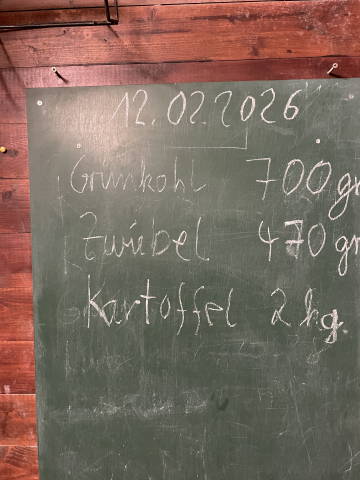 12.02.2026
Grünkohl 700 gr
Zwiebel 470 gr
Kartoffel 2 kg.